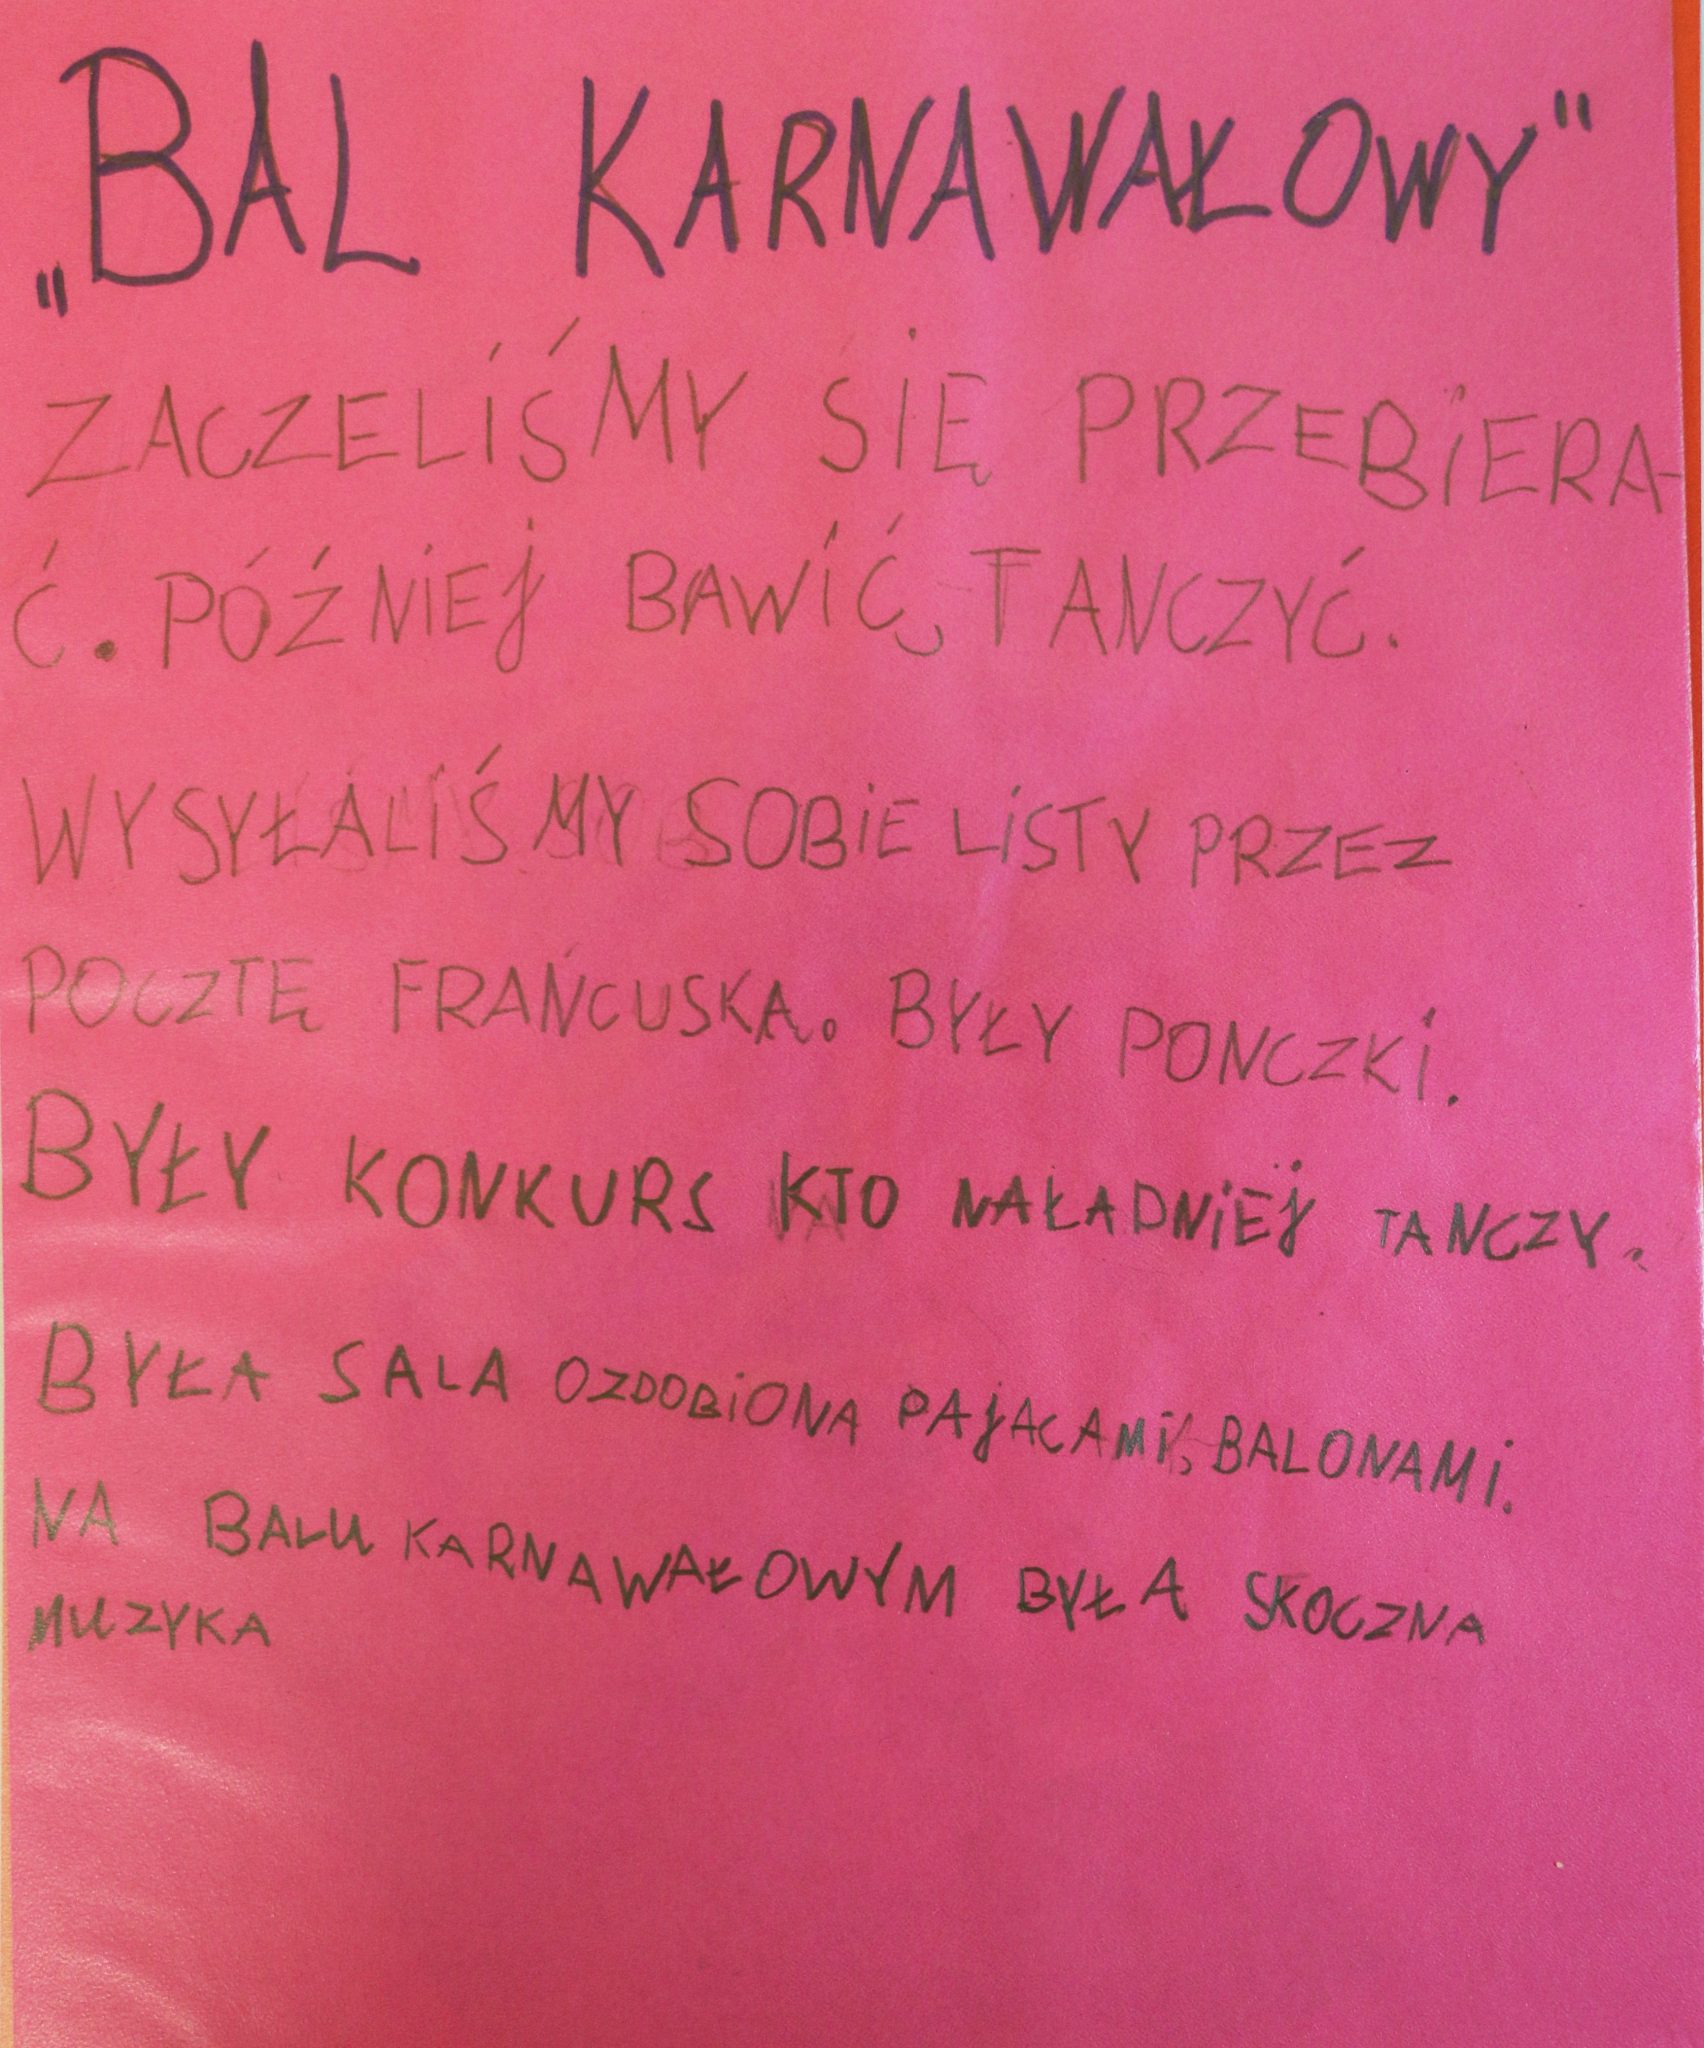 „BAL KARNAWAŁOWY"
ZACZELIŚMY SIĘ PRZEBIERA-
Ć. PÓŹNIEJ BAWIĆ, TANCZYĆ.
WYSYŁALIŚMY SOBIE LISTY PRZEZ
POCZTĘ FRAŃCUSKĄ. BYŁY PONCZKI.
BYŁY KONKURS KTO NAŁADNIEJ TANCZY.
BYŁA SALA OZDOBIONA PAJACAMI, BALONAMI.
NA BALU KARNAWAŁOWYM BYŁA SKOCZNA
MUZYKA